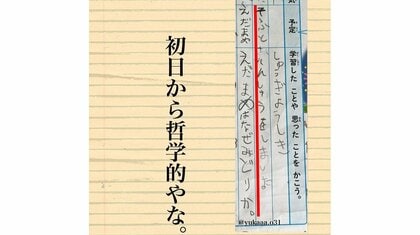 予定
学習した ことや 思った ことを かこう。
しゅうぎょうしき
えだまめはなぜみどりか。
@yukaaa.n31
初日から哲学的やな。